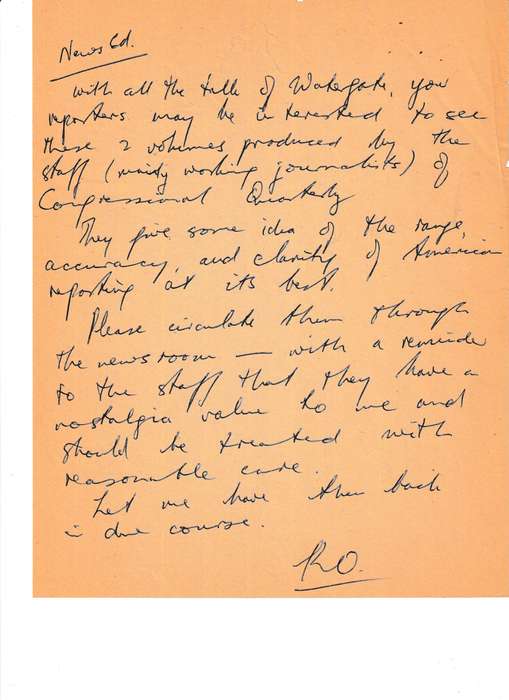 News Ed.
With all the talk of Watergate, you
reporters may be interested to see
these 2 volumes produced by the
staff (mainly working journalists) of
Congressional Quarterly
They give some idea of the range,
accuracy, and clarity of American
reporting at its best.
Please circulate them through
the newsroom — with a reminder
to the staff that they have a
nostalgia value to me and
should be treated with
reasonable care.
Let me have them back
in due course.
RO.